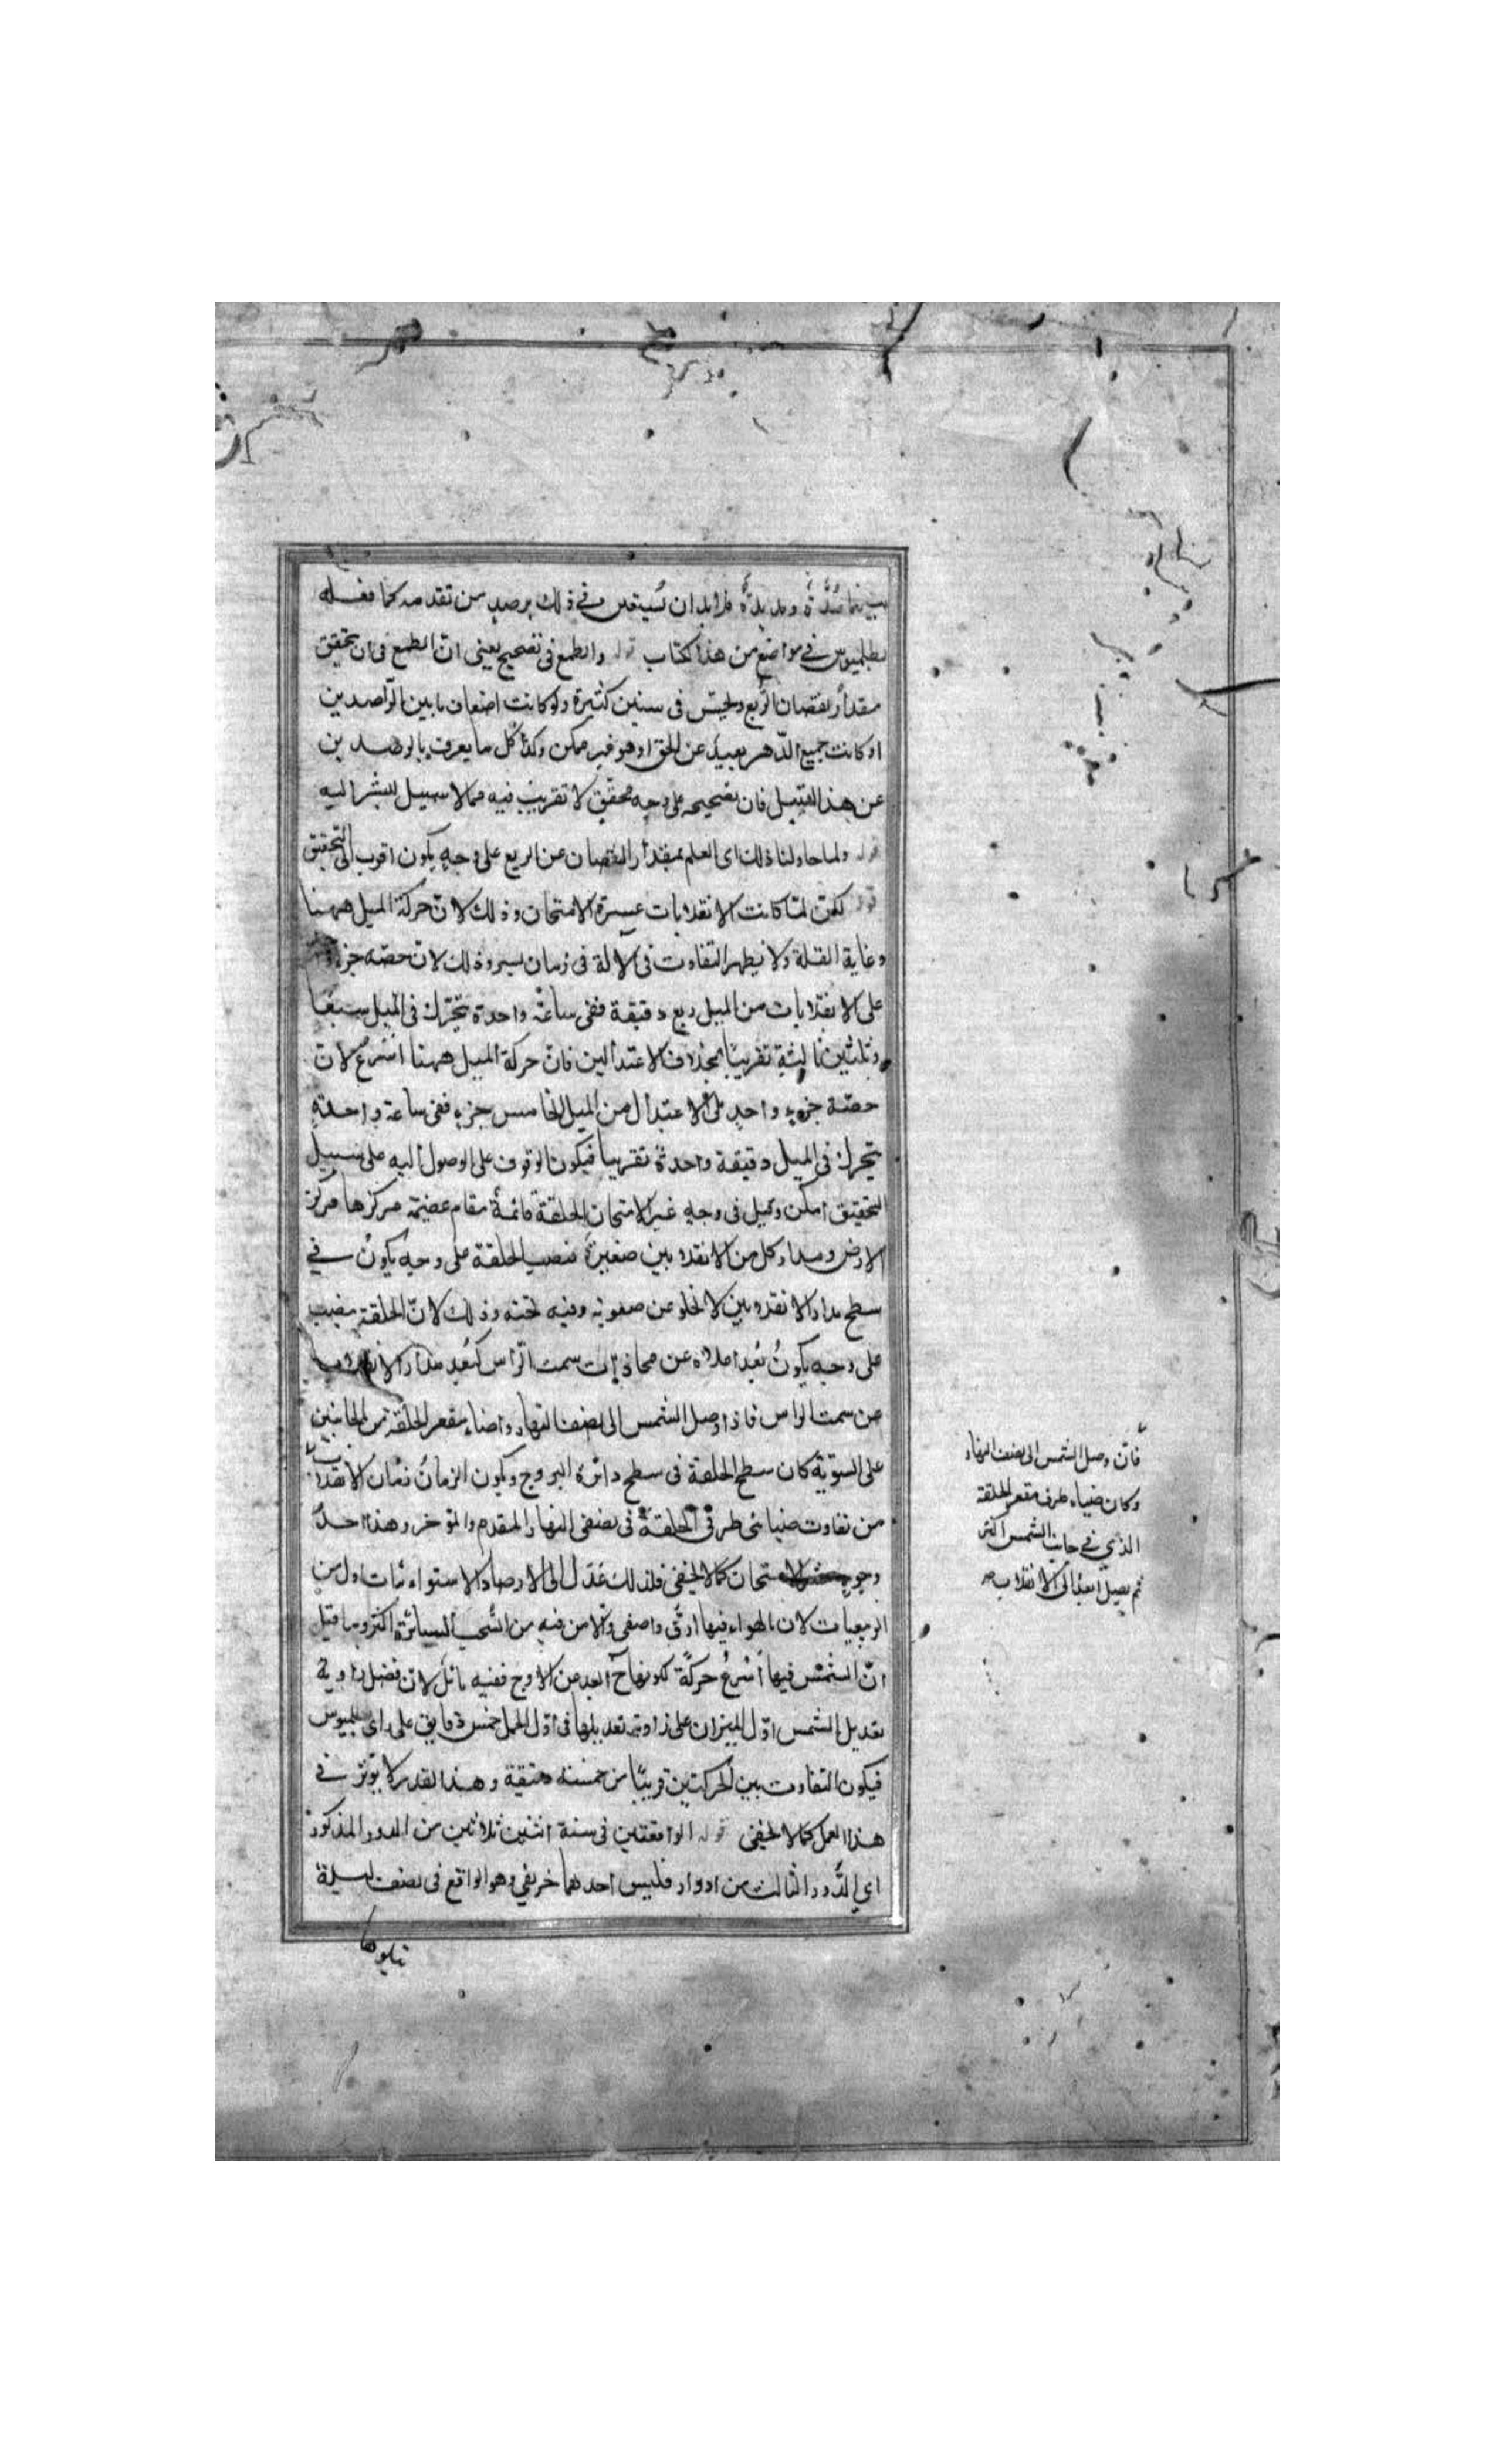 بينهما مُدّة مديدة فلابد ان يُستعن فى ذلك برصد من تقدمه كما فعله
بطلميوس فى مواضع من هذا الكتاب قوله والطمع فى تصحيح يعنى انّ الطمع فى ان تحقيق
مقدار نقصان الرُبع فى سنين كثيرة ولو كانت اضعاف ما بين الراصدين
او كانت جميع الدّهر بعيد عن الحق اذ هو غير ممكن وكذا كل ما يعرف بالرصد من
عن هذا القبيل فان تصحيحه على وجه محقّق لا تقريب فيه مما لا سبيل للبشر اليه
قوله ولما حاولنا ذلك اى العلم بمقدار النقصان عن الربع على وجهٍ يكون اقرب الى التحقيق
قوله لكن لمّا كانت الانقلابات عسرة الامتحان وذلك لانّ حركة الميل ههنا
وغاية القلة ولا يظهر التفاوت فى الالة فى زمان يسير وذلك لان حصّه جزء
على الانقلابات من الميل ربع دقيقة ففى ساعة واحدة يتحرّك فى الميل سبعًا
وثلثين ثالثة تقريبًا بخلاف الاعتدالين فانّ حركة الميل ههنا اسرع لانّ
حصّة جزءٍ واحدٍ على الاعتدال من الميل خامس جزء ففى ساعة واحدة
يتحرك فى الميل دقيقة واحدة تقريبا فيكون الوقوف على الوصول اليه على سبيل
التحقيق امكن وقيل فى وجه عسر الامتحان الحلقة قائمة مقام عظيمة مركزها مركز
الارض ومدار كل من الانقلابين صغيرة فنصب الحلقة على وجهٍ يكونُ فى
سطح مدار الانقلابين لا يخلو عن صعوبة وفيه وذلك لانّ الحلقة ينصب
على وجه يكونُ بُعد اعلاه عن محاذات سمت الرّأس كبُعد مدار الانقلاب
عن سمت الراس فاذا وصل الشمس الى نصف النهار واضاء مقعر الحلقة من الجانبين
على السّويّة كان سطح الحلقة فى سطح دائرة البروج ويكون الزمانُ زمان الانقلاب
من تفاوت ضيائى طرفى الحلقة فى نصفى النهار المقدم والمؤخر وهذا احدُ
وجوه الامتحان كما لا يخفى فلذلك عَدَل الى الارصاد الاستوائيات اول من
الربيعيات لان الهواء فيها ارقّ واصفى والامن فيه من السُّحب الساترة اكثر وما قيل
انّ الشمس فيها اسْرعُ حركةً لكونها ابعد من الاوج ففيه تأمّل لان فضل زاوية
تعديل الشمس اوّل الميزان على زاوية تعديلها فى اوّل الحمل خمس دقايق على راى بطلميوس
فيكون التفاوت بين الحركتين قريبًا من خمسة دقيقة وهذا القدر لا يؤثر فى
هذا العمل كما لا يخفى قوله الواقعتين فى سنة اثنين ثلاثين من الدور المذكور
اى الدَّور الثالث من ادوار فليس احدهما خريفى وهو الواقع فى نصف ليلة
يتلوها
فان وصل الشمس الى نصف النهار
وكان ضياء طرف مقعر الحلقة
الذى فى جانب الشمس اكثر
لم يصل بعدُ الى الانقلاب صح